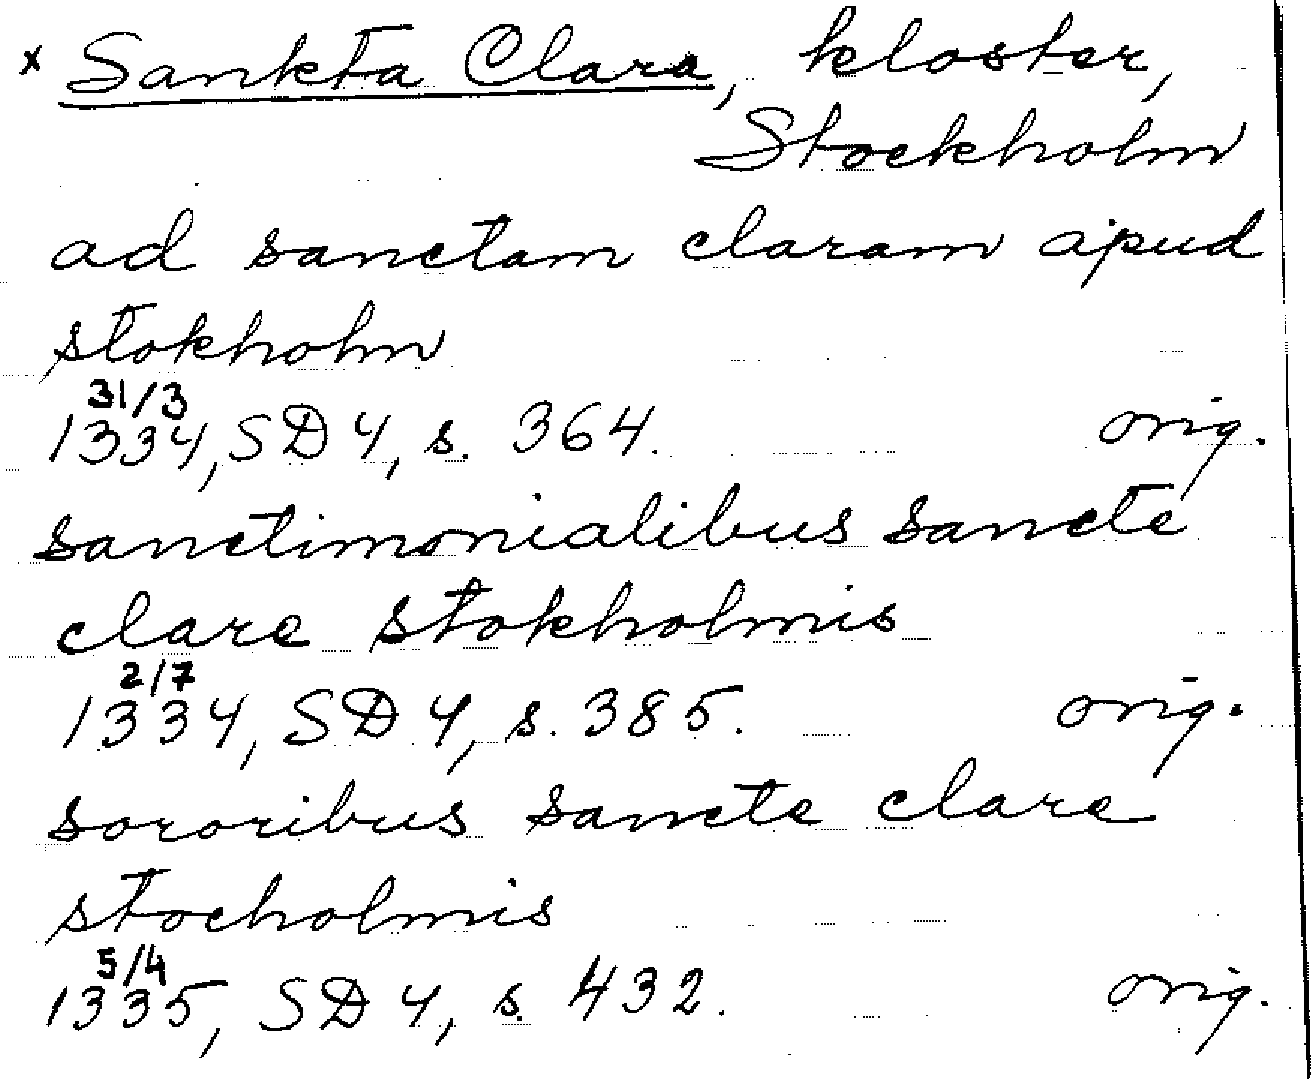 x Sankta Clara, kloster,
Stockholm
ad sanctam claram apud
stokholm
31/3
1334, SD 4, s. 364. orig.
sanctimonialibus sancte
clare stokholmis
2/7
1334, SD 4, s. 385. orig.
sororibus sancte clare
stocholmis
5/4
1335, SD 4, s. 432. orig.